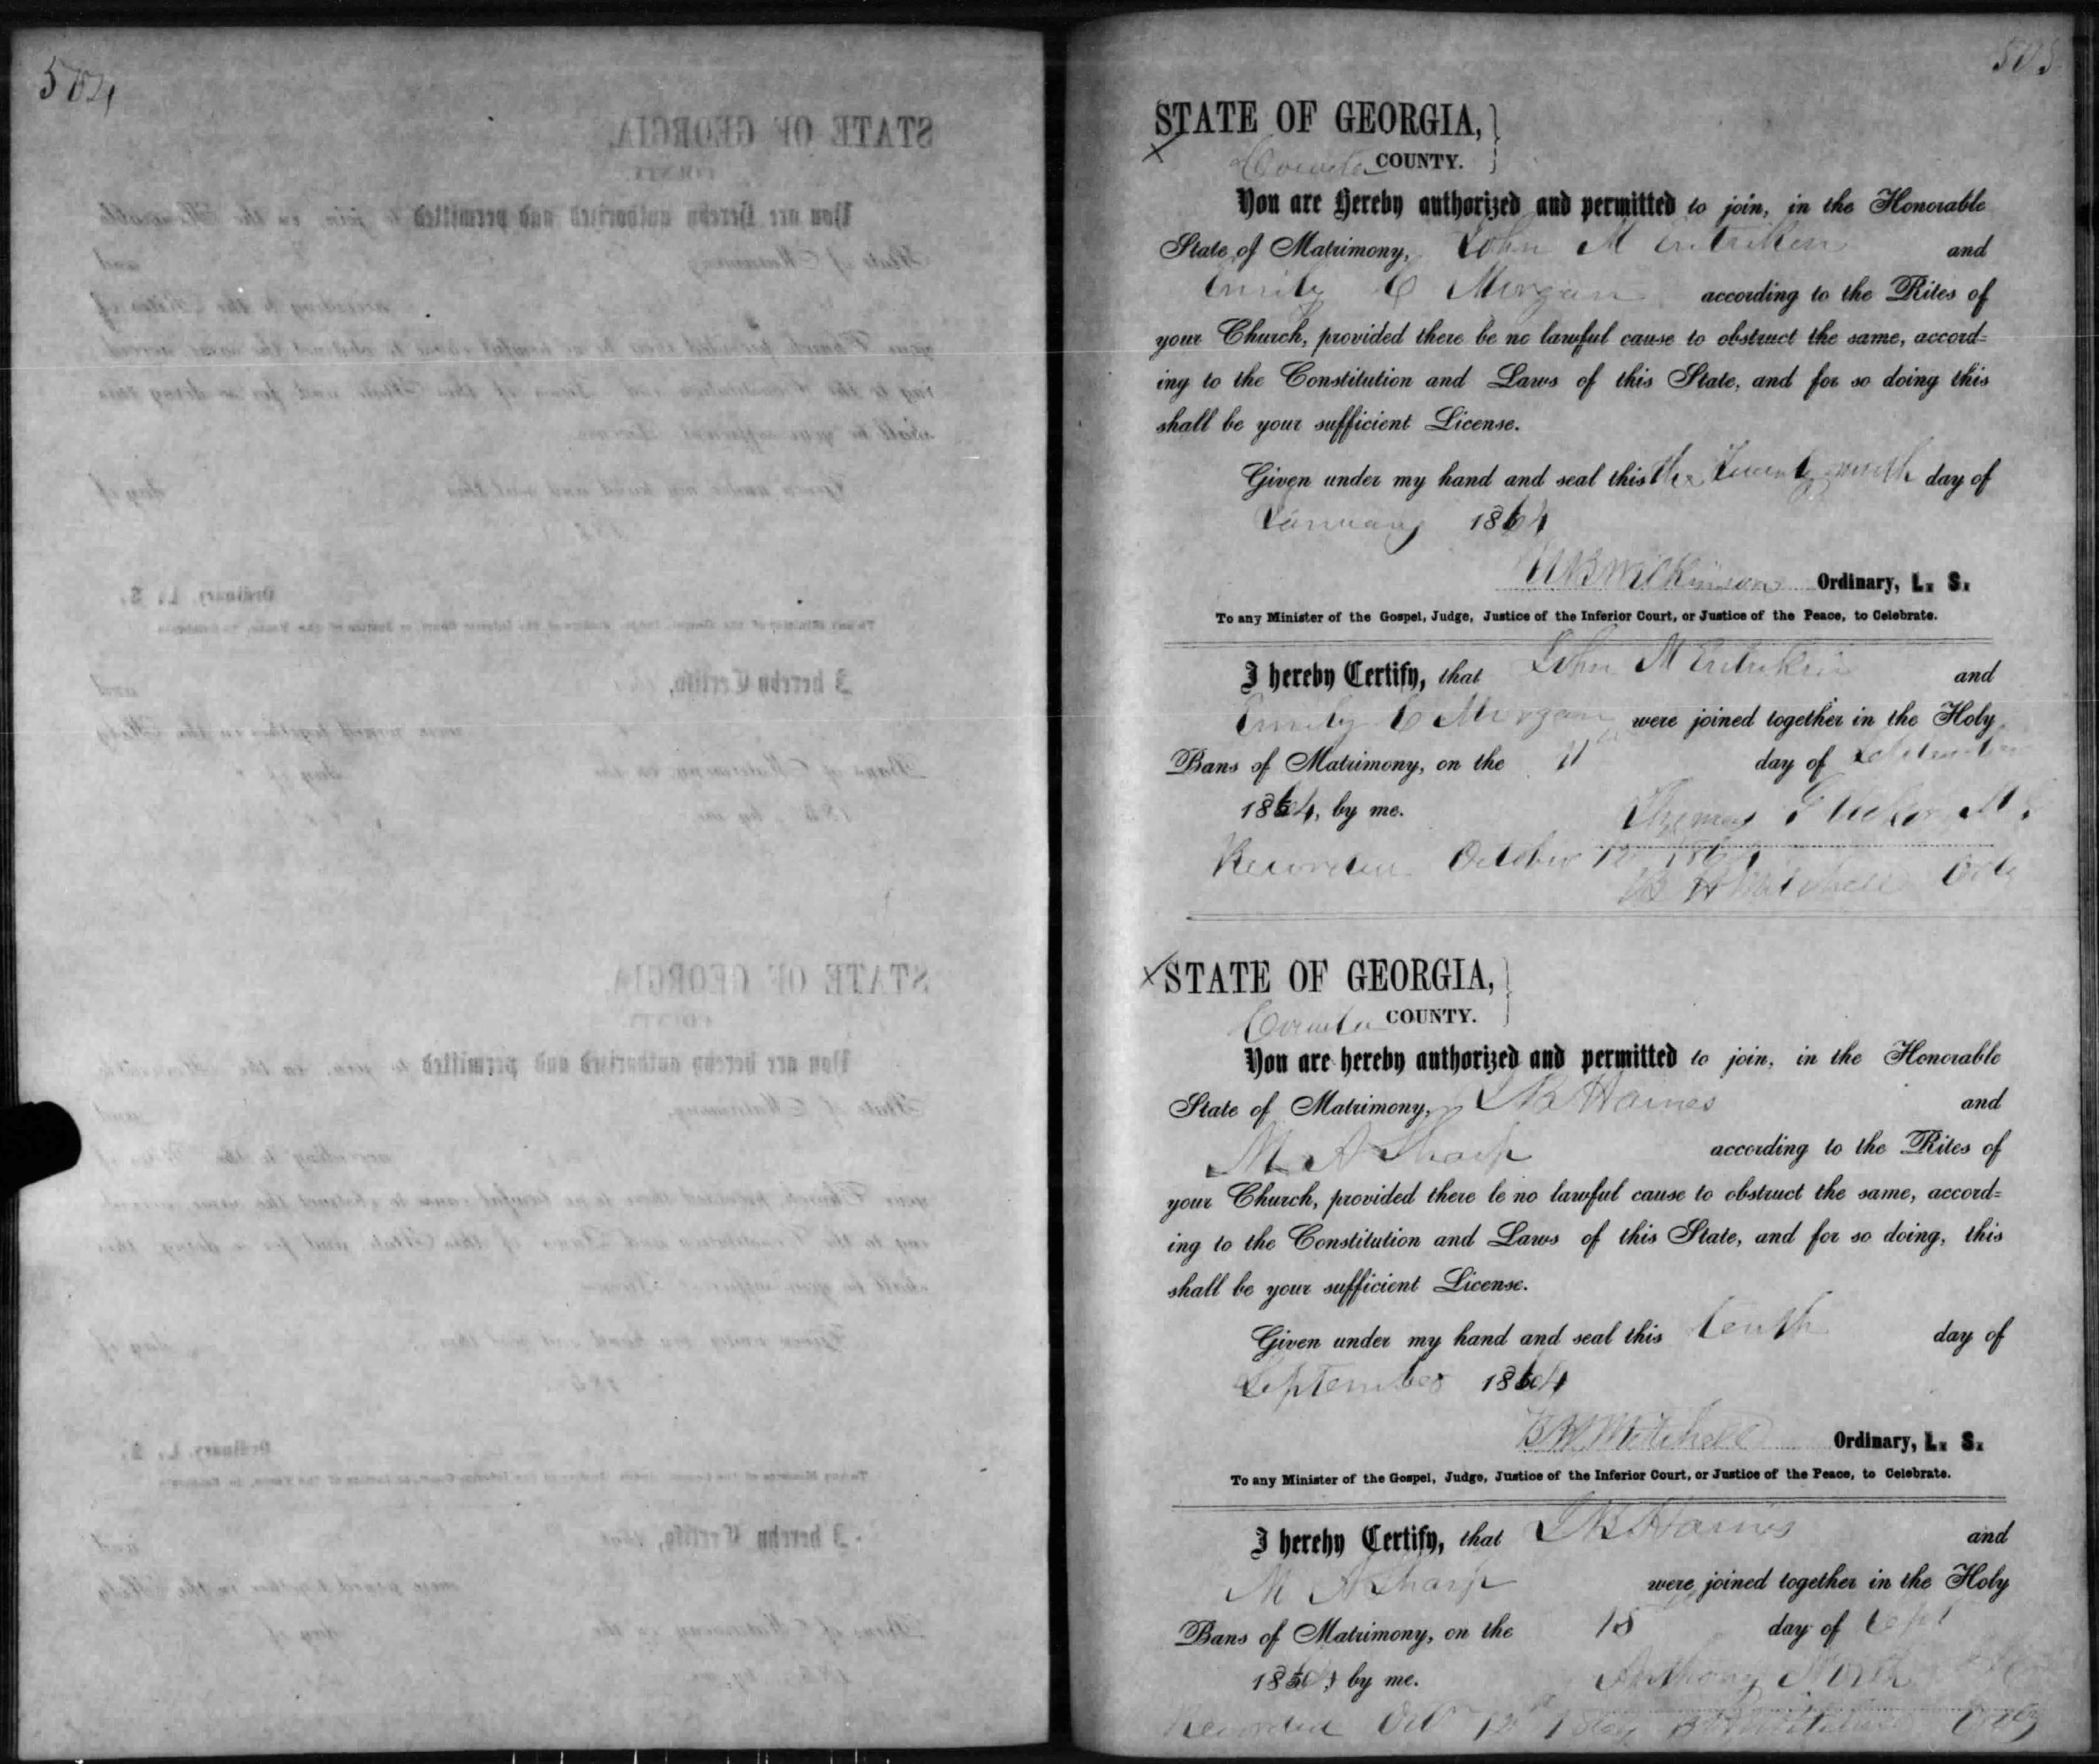 504
505
STATE OF GEORGIA,
Coweta COUNTY.
You are Hereby authorized and permitted to join, in the Honorable
State of Matrimony, John M and
Emily C Morgan according to the Rites of
your Church, provided there be no lawful cause to obstruct the same, accord=
ing to the Constitution and Laws of this State, and for so doing this
shall be your sufficient License.
Given under my hand and seal this the Twenty ninth day of
January 1864
Wilkinson Ordinary, L. S.
To any Minister of the Gospel, Judge, Justice of the Inferior Court, or Justice of the Peace, to Celebrate.
I hereby Certify, that John M and
Emily C Morgan were joined together in the Holy
Bans of Matrimony, on the 11 day of
1864, by me. Thomas
Recorded October 12 1864
B H Mitchell Ordy
STATE OF GEORGIA,
Coweta COUNTY.
You are hereby authorized and permitted to join, in the Honorable
State of Matrimony, J B Haines and
M A Sharp according to the Rites of
your Church, provided there be no lawful cause to obstruct the same, accord=
ing to the Constitution and Laws of this State, and for so doing, this
shall be your sufficient License.
Given under my hand and seal this tenth day of
September 1864
B H Mitchell Ordinary, L. S.
To any Minister of the Gospel, Judge, Justice of the Inferior Court, or Justice of the Peace, to Celebrate.
I hereby Certify, that J B Haines and
M A Sharp were joined together in the Holy
Bans of Matrimony, on the 15 day of Sept
1864, by me. Anthony North
Recorded Oct 12th 1864 B H Mitchell Ordy